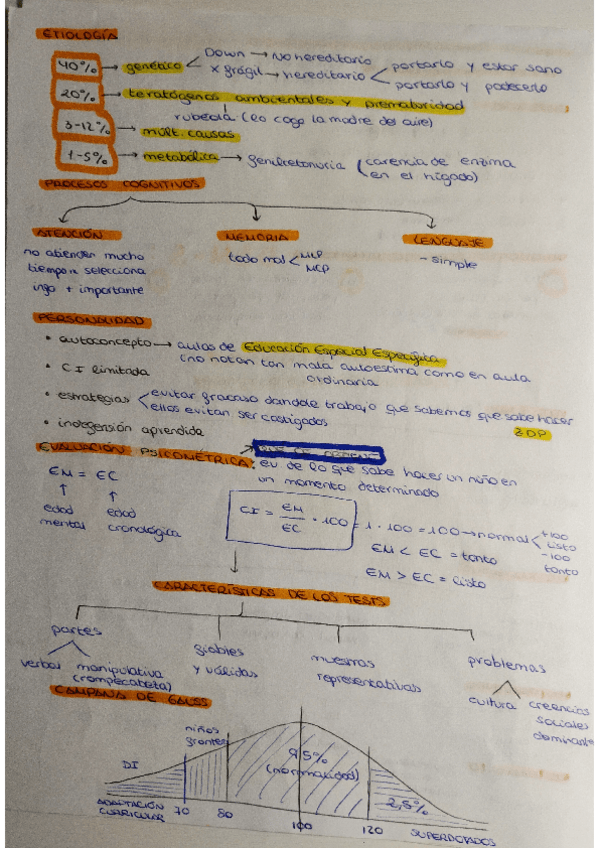 ETIOLOGÍA
40% → genético Down → No hereditario
x frágil → hereditario portarlo y estar sano
portarlo y padecerlo
20% → teratógenos ambientales y prematuridad
rubeola (lo coge la madre del aire)
3-12% → múlt. causas
1-5% → metabólica → fenilcetonuria (carencia de enzima
en el hígado)
PROCESOS COGNITIVOS
ATENCIÓN MEMORIA LENGUAJE
no atienden mucho todo mal MLP - simple
tiempo ni selecciona MCP
info + importante
PERSONALIDAD
• autoconcepto → aulas de Educación Especial Específica
(no notan tan mala autoestima como en aula
ordinaria
• CI limitada
• estrategias evitar fracaso dandole trabajo que sabemos que sabe hacer
ellos evitan ser castigados ZDP
• indefensión aprendida
EVALUACIÓN PSICOMÉTRICA: ev de lo que sabe hacer un niño en
un momento determinado
EM = EC
↑ ↑
edad edad
mental cronológica
CI = EM/EC · 100 = 1 · 100 = 100 → normal +100
listo
-100
tonto
EM < EC = tonto
EM > EC = listo
CARACTERÍSTICAS DE LOS TESTS
partes fiables muestras problemas
verbal manipulativa y válidas representativas cultura creencias
(rompecabeza) sociales
dominante
CAMPANA DE GAUSS
niños
frontera
DI 95%
(normalidad) 2,5%
ADAPTACIÓN
CURRICULAR 70 80 100 120 SUPERDOTADOS